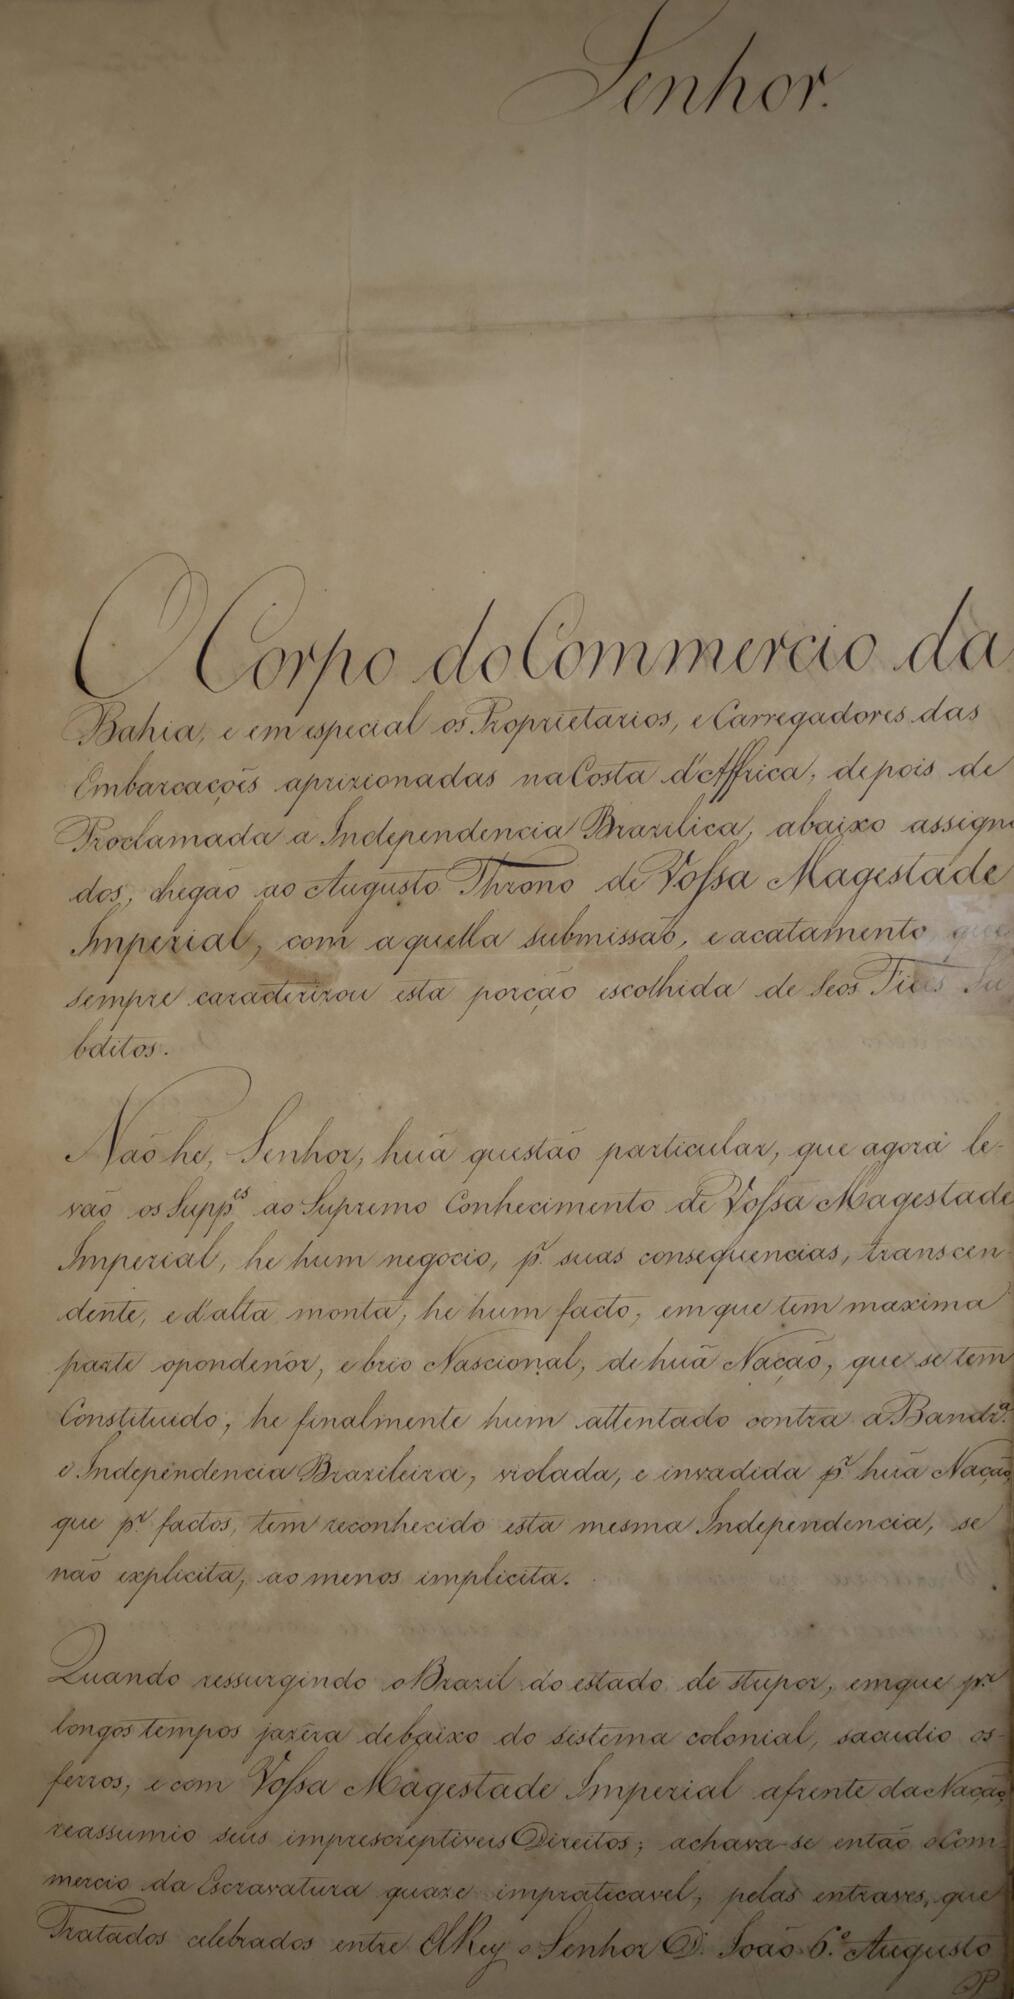 Senhor.
O Corpo do Commercio da
Bahia, e em especial os Proprietarios, e Carregadores das
Embarcaçoẽs aprizionadas na Costa d'Affrica, depois de
Proclamada a Independencia Brazilica, abaixo assign
dos, chegaõ ao Augusto Throno de Vossa Magestade
Imperial, com aquella submissaõ, e acatamento, que
sempre caracterizou esta porçaõ escolhida de Seos Fieis Su
bditos.
Naõ he, Senhor, huã questaõ particular, que agora le-
vaõ os Supp.es ao Supremo Conhecimento de Vossa Magestade
Imperial, he hum negocio, p.r suas consequencias, transcen-
dente, e d'alta monta; he hum facto, em que tem maxima
parte opondenór, e brio Nascional, de huã Naçaõ, que se tem
Constituido; he finalmente hum attentado contra a Bandr.a
e Independencia Brazileira, violada, e invadida p.r huã Naçaõ,
que p.r factos, tem reconhecido esta mesma Independencia, se
naõ explicita, ao menos implicita.
Quando ressurgindo o Brazil do estado de stupor, em que p.r
longos tempos jazêra debaixo do sistema colonial, sacudio os
ferros, e com Vossa Magestade Imperial afrente da Naçaõ,
reassumio seus imprescreptiveis Direitos; achava-se entaõ o Com-
mercio da Escravatura quaze impraticavel, pelas entraves, que
Tratados celebrados entre ElRey o Senhor D. Joaõ 6.º Augusto
P